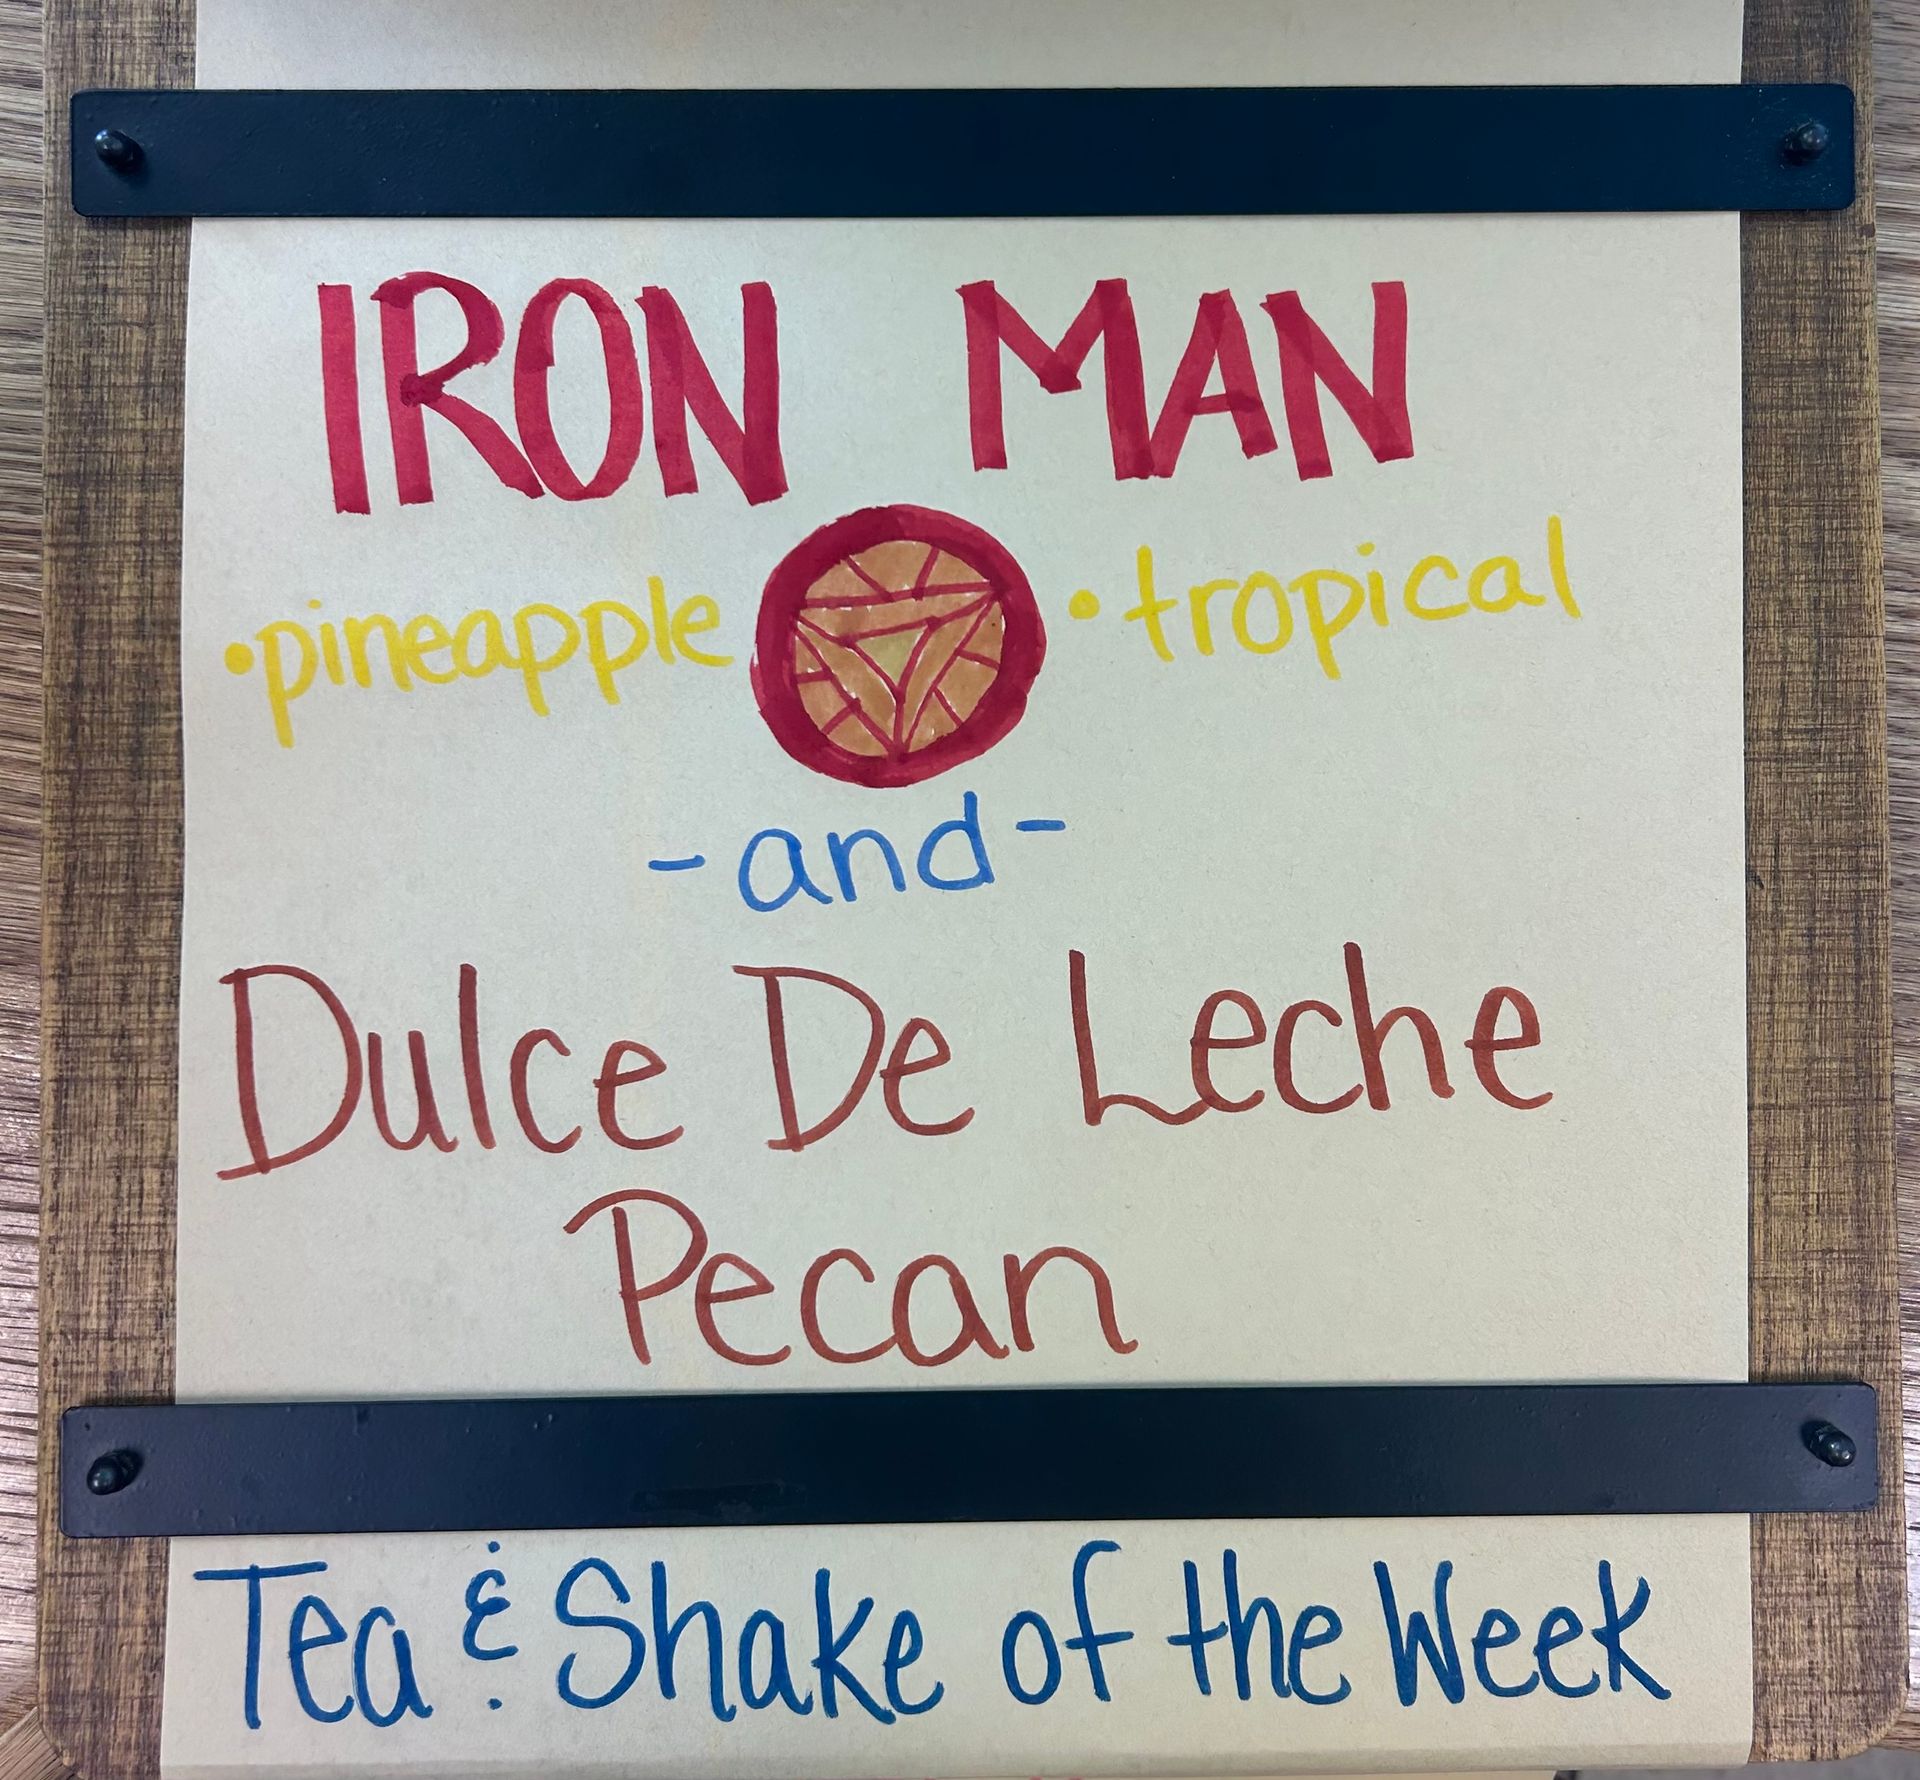 IRON MAN
•pineapple •tropical
-and-
Dulce De Leche
Pecan
Tea & Shake of the Week